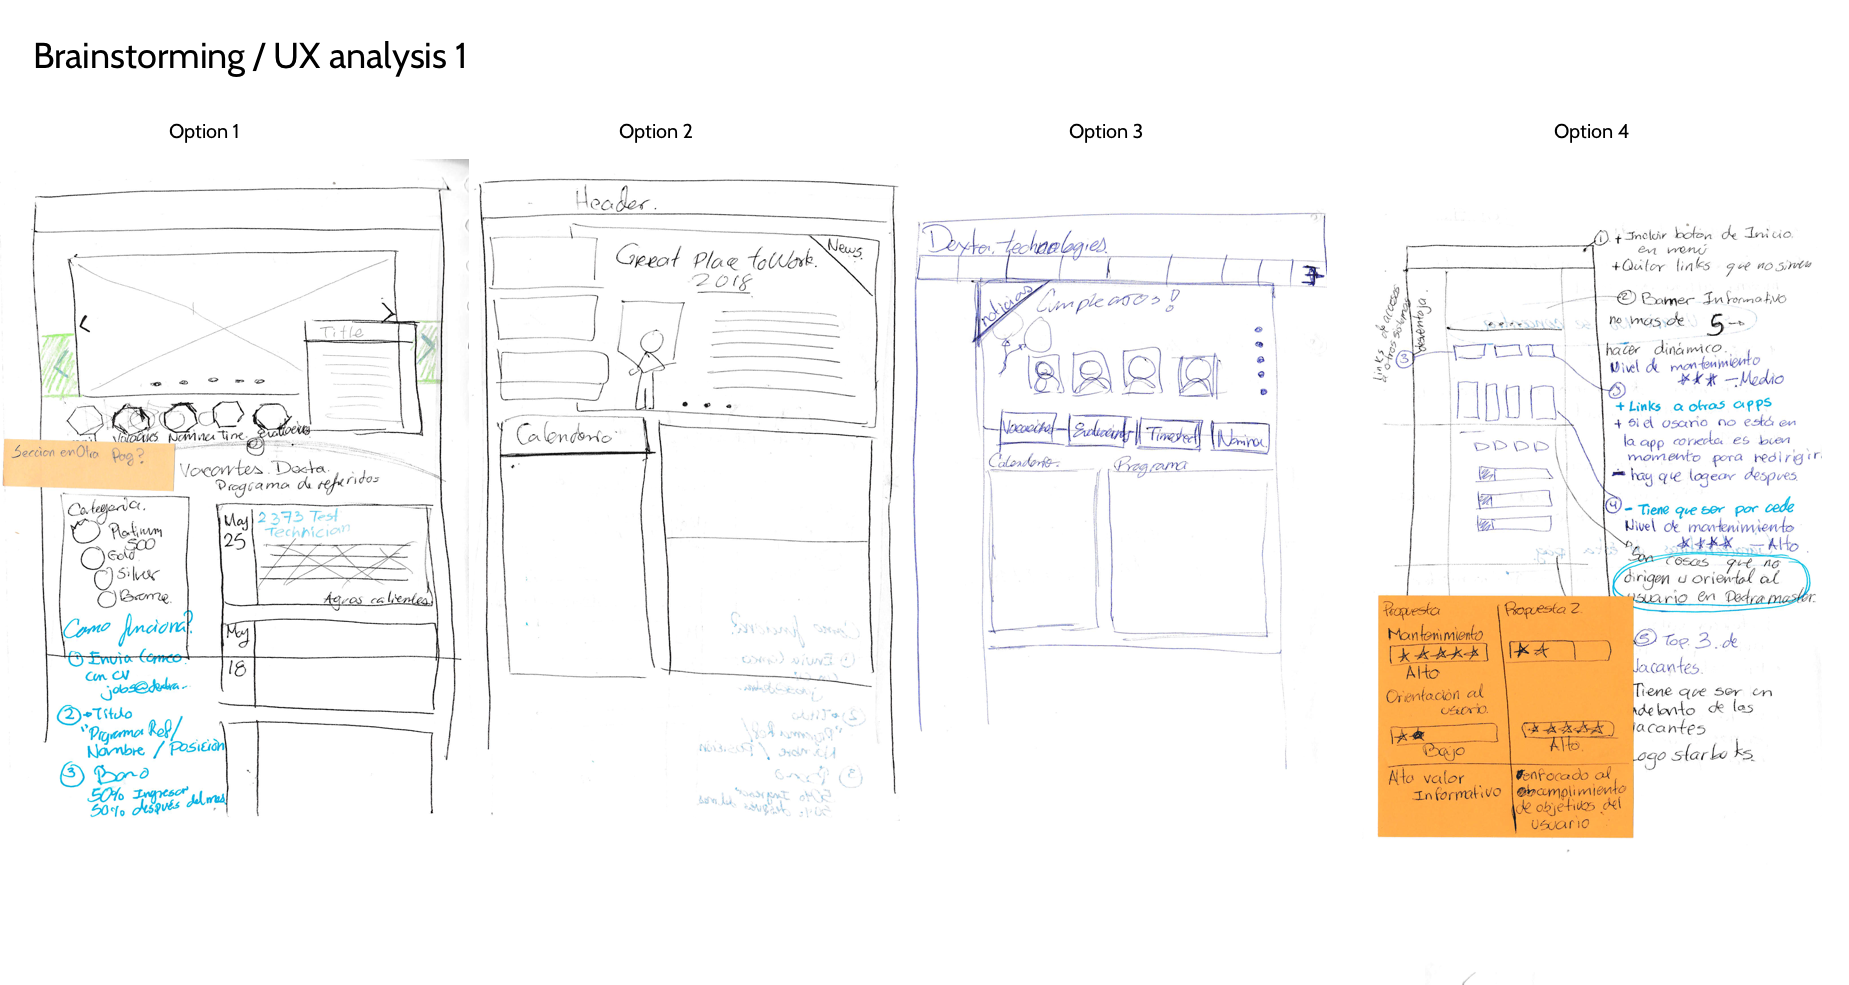 Brainstorming / UX analysis 1
Option 1
Option 2
Option 3
Option 4
Title
Nomina Time
Seccion en Otra Pag?
Vacantes Dextra.
Programa de referidos
Categoria.
Platinum
500
Gold
Silver
Bronce
May
25
2373 Test
Technician
Aguas calientes
May
18
Como funciona?
① Envia Correo
con CV
jobs@dextra.
② → Titulo
"Programa Ref/
Nombre / Posición
③ Bono
50% Ingresar
50% después del mes
Header.
Great Place to Work.
2018
News.
Calendario
Dextra technologies
noticias
Cumpleaños!
Vacaciones
Timesheet
Nomina
Calendario.
Programa
Links de accesos
a otros sistemas
desventaja.
③
① + Incluir botón de Inicio.
en menú
+ Quitar links que no sirven
② Banner Informativo
no mas de 5 →
hacer dinámico.
Nivel de mantenimiento
★★★ — Medio
③
+ Links a otras apps
+ si el usario no está en
la app correcta es buen
momento para redirigir.
- hay que logear despues.
④ - Tiene que ser por cede
Nivel de mantenimiento
★★★★ — Alto
Son cosas que no
dirigen u oriental al
usuario en Dextramaster.
⑤ Top 3. de
Vacantes.
Tiene que ser un
adelanto de las
vacantes
Logo starbucks.
Propuesta
Propuesta 2.
Mantenimiento
★★★★★
★★
Alto
Orientación al
usuario.
★★
★★★★★
Bajo
Alto.
Alto valor
Informativo
enfocado al
cumplimiento
de objetivos del
usuario